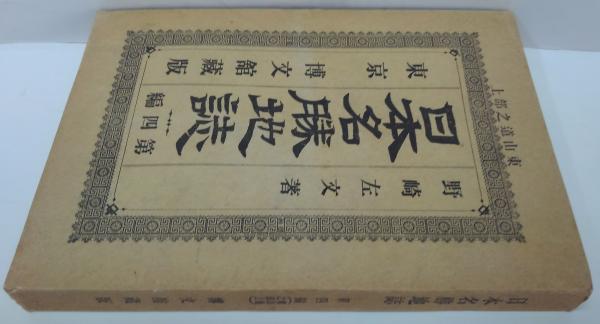 東山道之部上
野崎左文著
日本名勝地誌 第四編
東京 博文館藏版
日本名勝地誌 第四編 博文館藏版